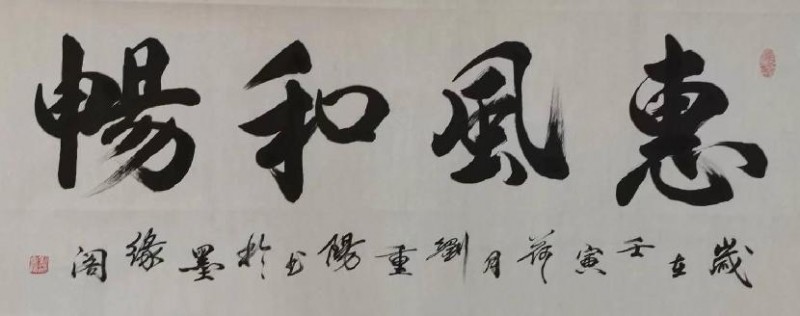 惠風和暢
歲在壬寅荷月劉重陽書於墨緣閣